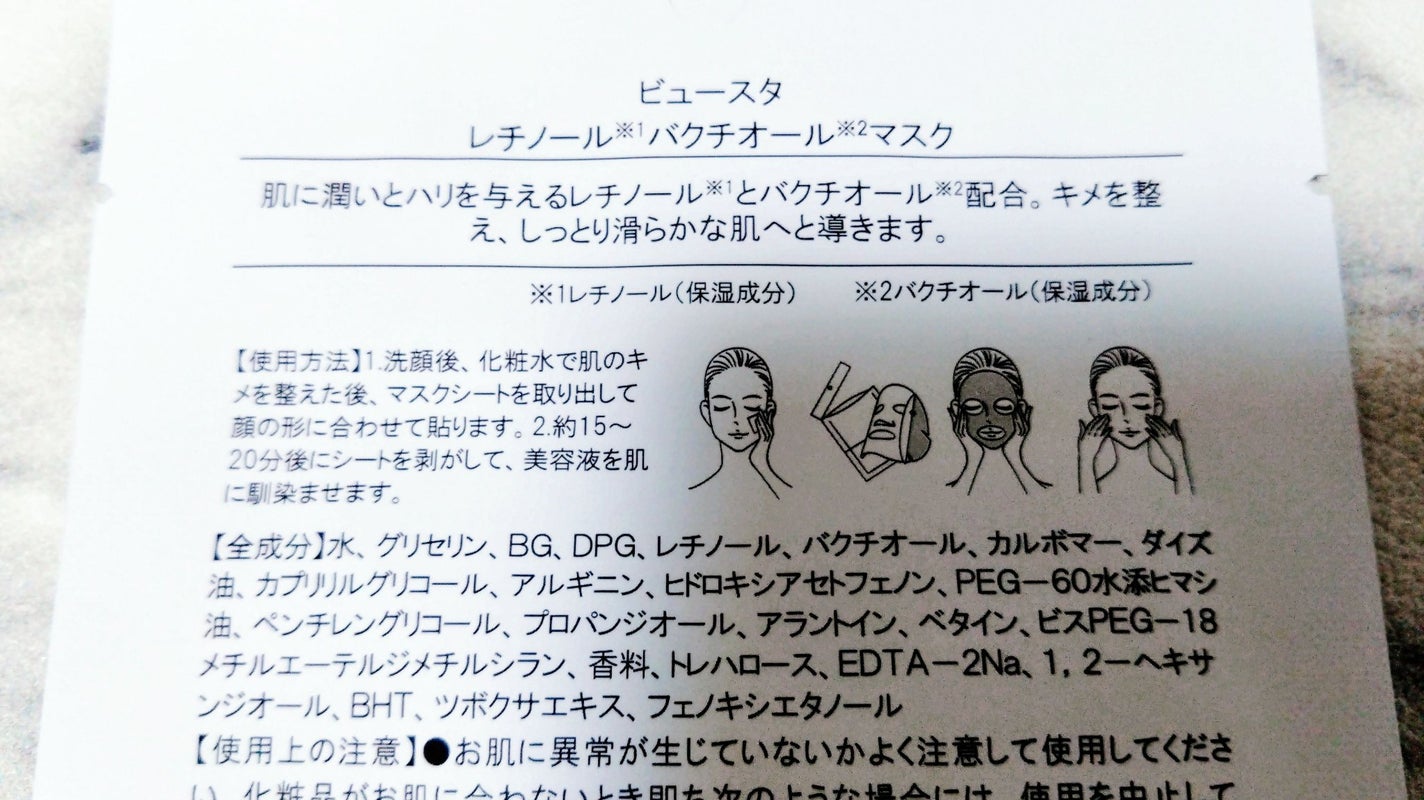 ビュースタ
レチノール※1バクチオール※2マスク
肌に潤いとハリを与えるレチノール※1とバクチオール※2配合。キメを整
え、しっとり滑らかな肌へと導きます。
※1レチノール(保湿成分) ※2バクチオール(保湿成分)
【使用方法】1.洗顔後、化粧水で肌のキ
メを整えた後、マスクシートを取り出して
顔の形に合わせて貼ります。2.約15〜
20分後にシートを剥がして、美容液を肌
に馴染ませます。
【全成分】水、グリセリン、BG、DPG、レチノール、バクチオール、カルボマー、ダイズ
油、カプリリルグリコール、アルギニン、ヒドロキシアセトフェノン、PEG－60水添ヒマシ
油、ペンチレングリコール、プロパンジオール、アラントイン、ベタイン、ビスPEG－18
メチルエーテルジメチルシラン、香料、トレハロース、EDTA－2Na、1, 2－ヘキサ
ンジオール、BHT、ツボクサエキス、フェノキシエタノール
【使用上の注意】●お肌に異常が生じていないかよく注意して使用してくださ
い。化粧品がお肌に合わないとき即ち次のような場合には、使用を中止して